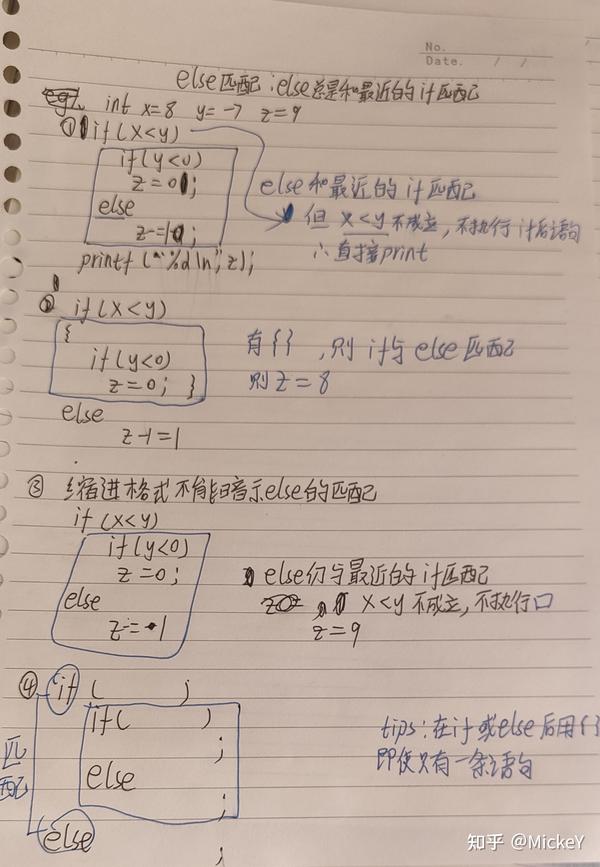 No.
Date. / /
else匹配:else总是和最近的if匹配
eg1. int x=8 y=-7 z=9
① if(x<y)
if(y<0)
z=0;
else
z-=1;
printf("%d\n",z);
else和最近的if匹配
但 x<y不成立,不执行if后语句
∴直接print
② if(x<y)
{
if(y<0)
z=0; }
else
z-1=1
有{},则if与else匹配
则z=8
③ 缩进格式不能暗示else的匹配
if(x<y)
if(y<0)
z=0;
else
z-=1
else仍与最近的if匹配
x<y不成立,不执行口
z=9
④ if( )
if( )
;
else
;
else
;
匹配
tips:在if或else后用{}
即使只有一条语句
知乎 @MickeY